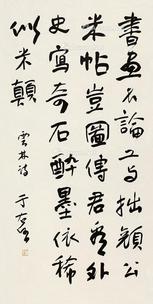 書畫不論工与拙顏公
米帖豈圖傳君看外
史寫奇石醉墨依稀
似米顛
雲林詩
于右任